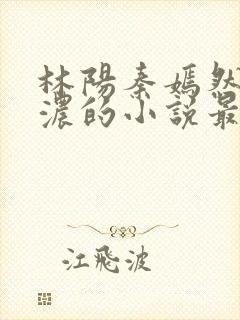 林陽秦嫣然
濃的小說最
江飛波